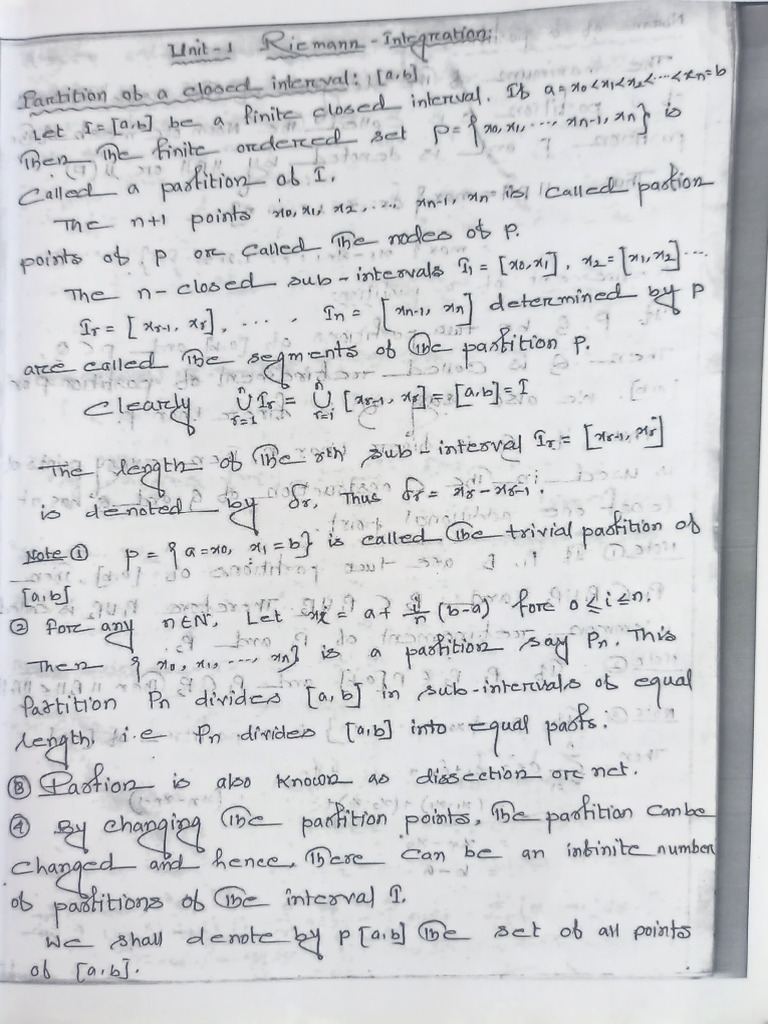 Unit-1 Riemann-Integreation:
Partition of a closed interval: [a,b]
Let I=[a,b] be a finite closed interval. If a=x₀<x₁<x₂<...<xₙ=b
Then The finite ordered set P={x₀,x₁,...,xₙ₋₁,xₙ} is
Called a partition of I.
The n+1 points x₀,x₁,x₂,...,xₙ₋₁,xₙ is called partion
points of P or called The nodes of P.
The n-closed sub-intervals I₁=[x₀,x₁], x₂=[x₁,x₂]...
Iᵣ=[xᵣ₋₁,xᵣ],...., Iₙ=[xₙ₋₁,xₙ] determined by P
are called The segments of The partition P.
Clearly ⋃ⁿᵣ₌₁ Iᵣ = ⋃ⁿᵣ₌₁ [xᵣ₋₁,xᵣ]=[a,b]=I
The length of The rth sub-interval Iᵣ=[xᵣ₋₁,xᵣ]
is denoted by δᵣ, Thus δᵣ=xᵣ-xᵣ₋₁.
Note ① P={a=x₀, x₁=b} is called The trivial partition of
[a,b]
② For any n∈N, Let xᵢ = a+ i/n (b-a) for 0≤i≤n.
Then {x₀,x₁,....,xₙ} is a partition say Pₙ. This
Partition Pₙ divides [a,b] in sub-intervals of equal
length. i.e Pₙ divides [a,b] into equal parts.
③ Partion is also known as dissection or net.
④ By changing The partition points, The partition can be
changed and hence, There can be an infinite number
of partitions of The interval I.
We shall denote by P[a,b] The set of all points
of [a,b].